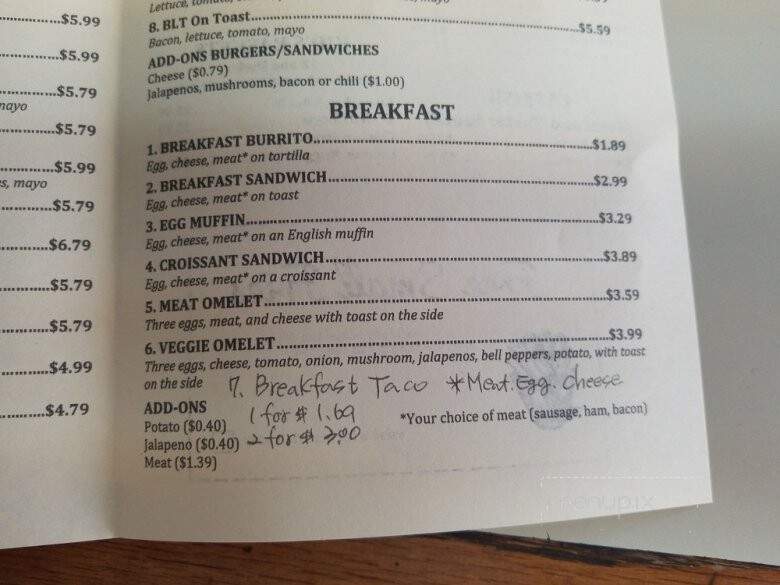 $5.99
$5.99
$5.79
mayo
$5.79
$5.99
mayo
$5.79
$6.79
$5.79
$5.79
$4.99
$4.79
Lettuce,
8. BLT On Toast $5.59
Bacon, lettuce, tomato, mayo
ADD-ONS BURGERS/SANDWICHES
Cheese ($0.79)
Jalapenos, mushrooms, bacon or chili ($1.00)
BREAKFAST
1. BREAKFAST BURRITO $1.89
Egg, cheese, meat* on tortilla
2. BREAKFAST SANDWICH $2.99
Egg, cheese, meat* on toast
3. EGG MUFFIN $3.29
Egg, cheese, meat* on an English muffin
4. CROISSANT SANDWICH $3.89
Egg, cheese, meat* on a croissant
5. MEAT OMELET $3.59
Three eggs, meat, and cheese with toast on the side
6. VEGGIE OMELET $3.99
Three eggs, cheese, tomato, onion, mushroom, jalapenos, bell peppers, potato, with toast
on the side
7. Breakfast Taco *Meat. Egg. Cheese
1 for $1.69
2 for $3.00
ADD-ONS
Potato ($0.40)
Jalapeno ($0.40)
Meat ($1.39)
*Your choice of meat (sausage, ham, bacon)